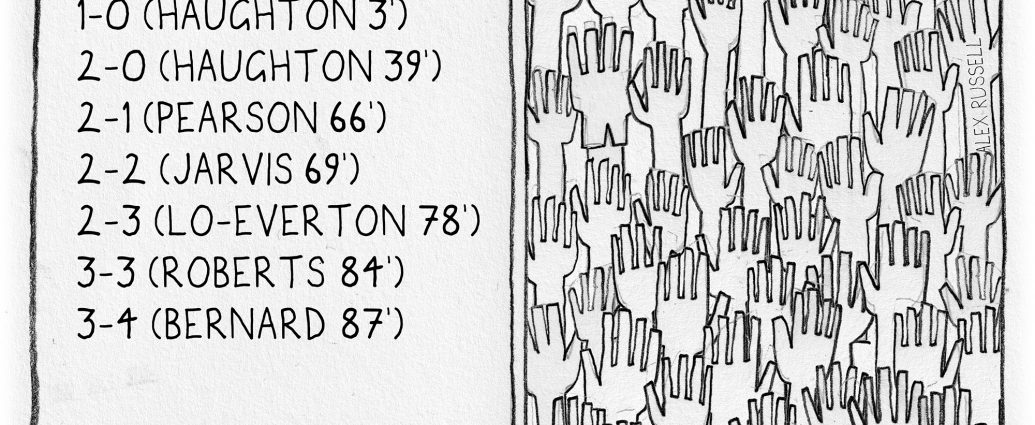 1-0 (HAUGHTON 3')
2-0 (HAUGHTON 39')
2-1 (PEARSON 66')
2-2 (JARVIS 69')
2-3 (LO-EVERTON 78')
3-3 (ROBERTS 84')
3-4 (BERNARD 87')
ALEX·RUSSELL